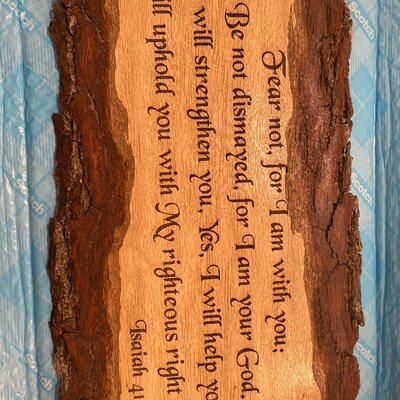 Fear not, for I am with you;
Be not dismayed, for I am your God.
will strengthen you, Yes, I will help yo
ll uphold you with My righteous right
Isaiah 41
Scotch
Scotch
Scotch
Scotch